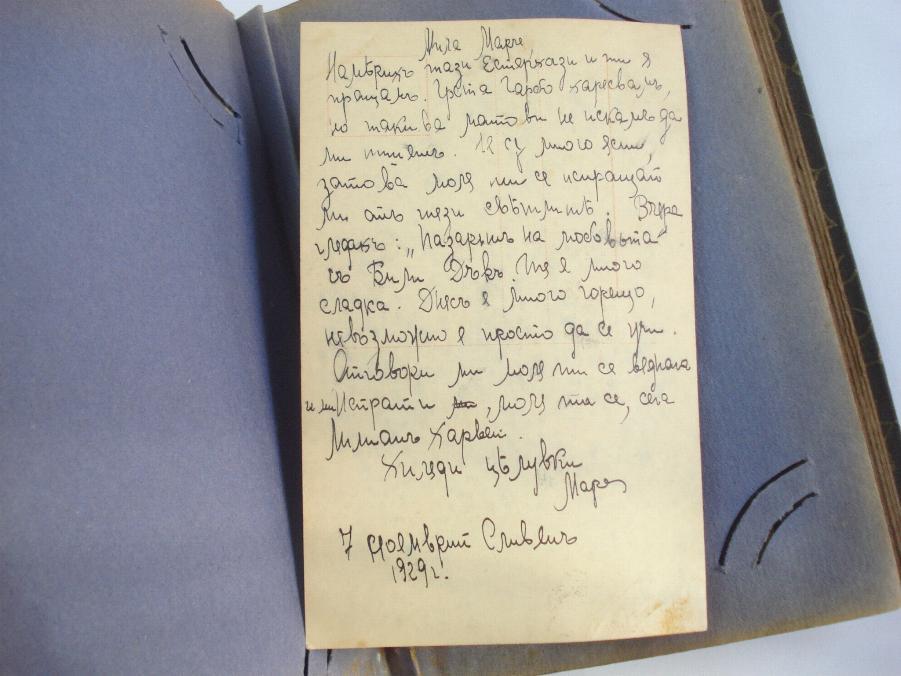 Мила Маре
Намѣрихъ тази Естерхази и ти я
пращамъ. Грета Гарбо харесвамъ,
но такива матови не искамъ да
ми пишешъ. Те су много ясни,
затова моля ти се изпращай
ми отъ тези свѣтлитѣ. Вчера
гледахъ: „Пазарътъ на любовьта"
съ Били Дъвъ. Тя е много
сладка. Днесъ е много горещо,
невозможно е просто да се учи.
Отговори ми моля ти се веднага
и ми Испрати, моля ти се, сега
Лилианъ Харвей.
Хиляди цѣлувки
Маре
7 ноемврий Сливенъ
1929 г.